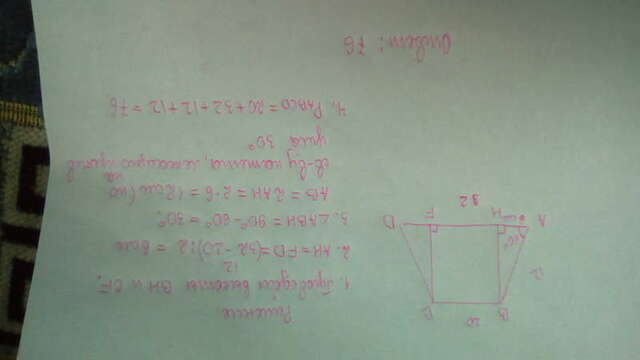 Решение
1. Проведём высоты BH и CF.
12
2. AH = FD = (32 - 20) : 2 = 6 см
3. ∠ABH = 90° - 60° = 30°.
AB = 2AH = 2 · 6 = 12 см (по
св-ву катета, лежащего против
угла 30°
4. PABCD = 20 + 32 + 12 + 12 = 76
Ответ: 76
20
B
C
12
60°
A
H
F
D
32